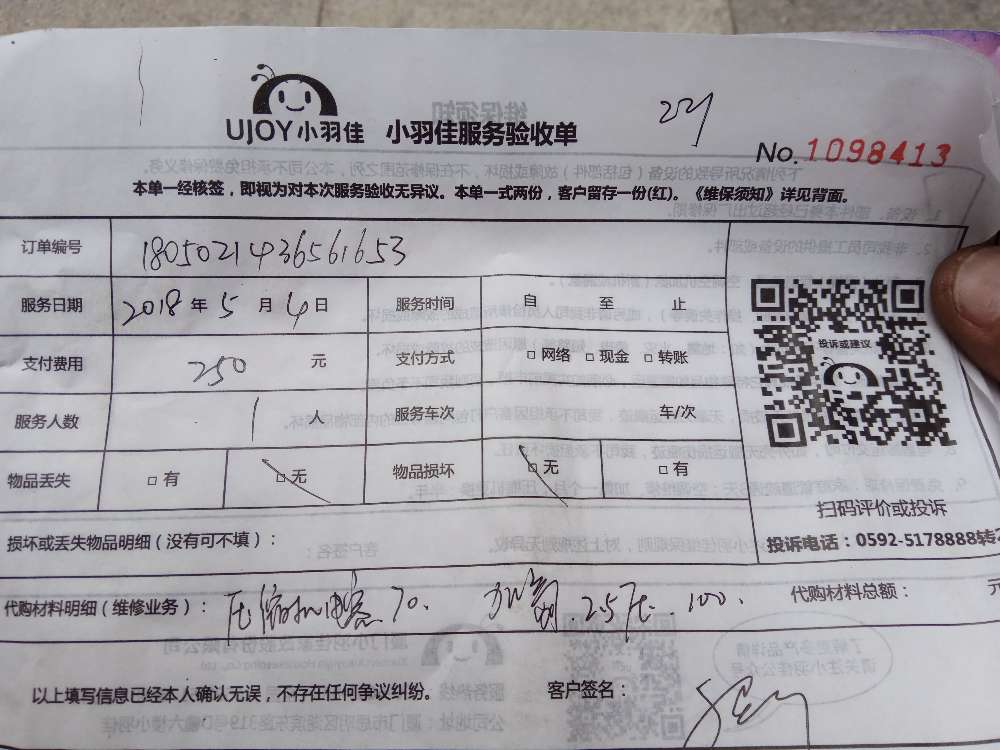 UJOY 小羽佳 小羽佳服务验收单
No. 1098413
本单一经核签，即视为对本次服务验收无异议。本单一式两份，客户留存一份(红)。《维保须知》详见背面。
订单编号 1805021436561653
服务日期 2018 年 5 月 4 日 服务时间 自 至 止
支付费用 250 元 支付方式 □ 网络 □ 现金 □ 转账
服务人数 1 人 服务车次 车/次
物品丢失 □ 有 □ 无 物品损坏 □ 无 □ 有
投诉或建议
扫码评价或投诉
投诉电话：0592-5178888转2
损坏或丢失物品明细（没有可不填）：
代购材料明细（维修业务）： 压缩机电容 70. 加氟 2.5压. 100. 代购材料总额： 元
以上填写信息已经本人确认无误，不存在任何争议纠纷。 客户签名：